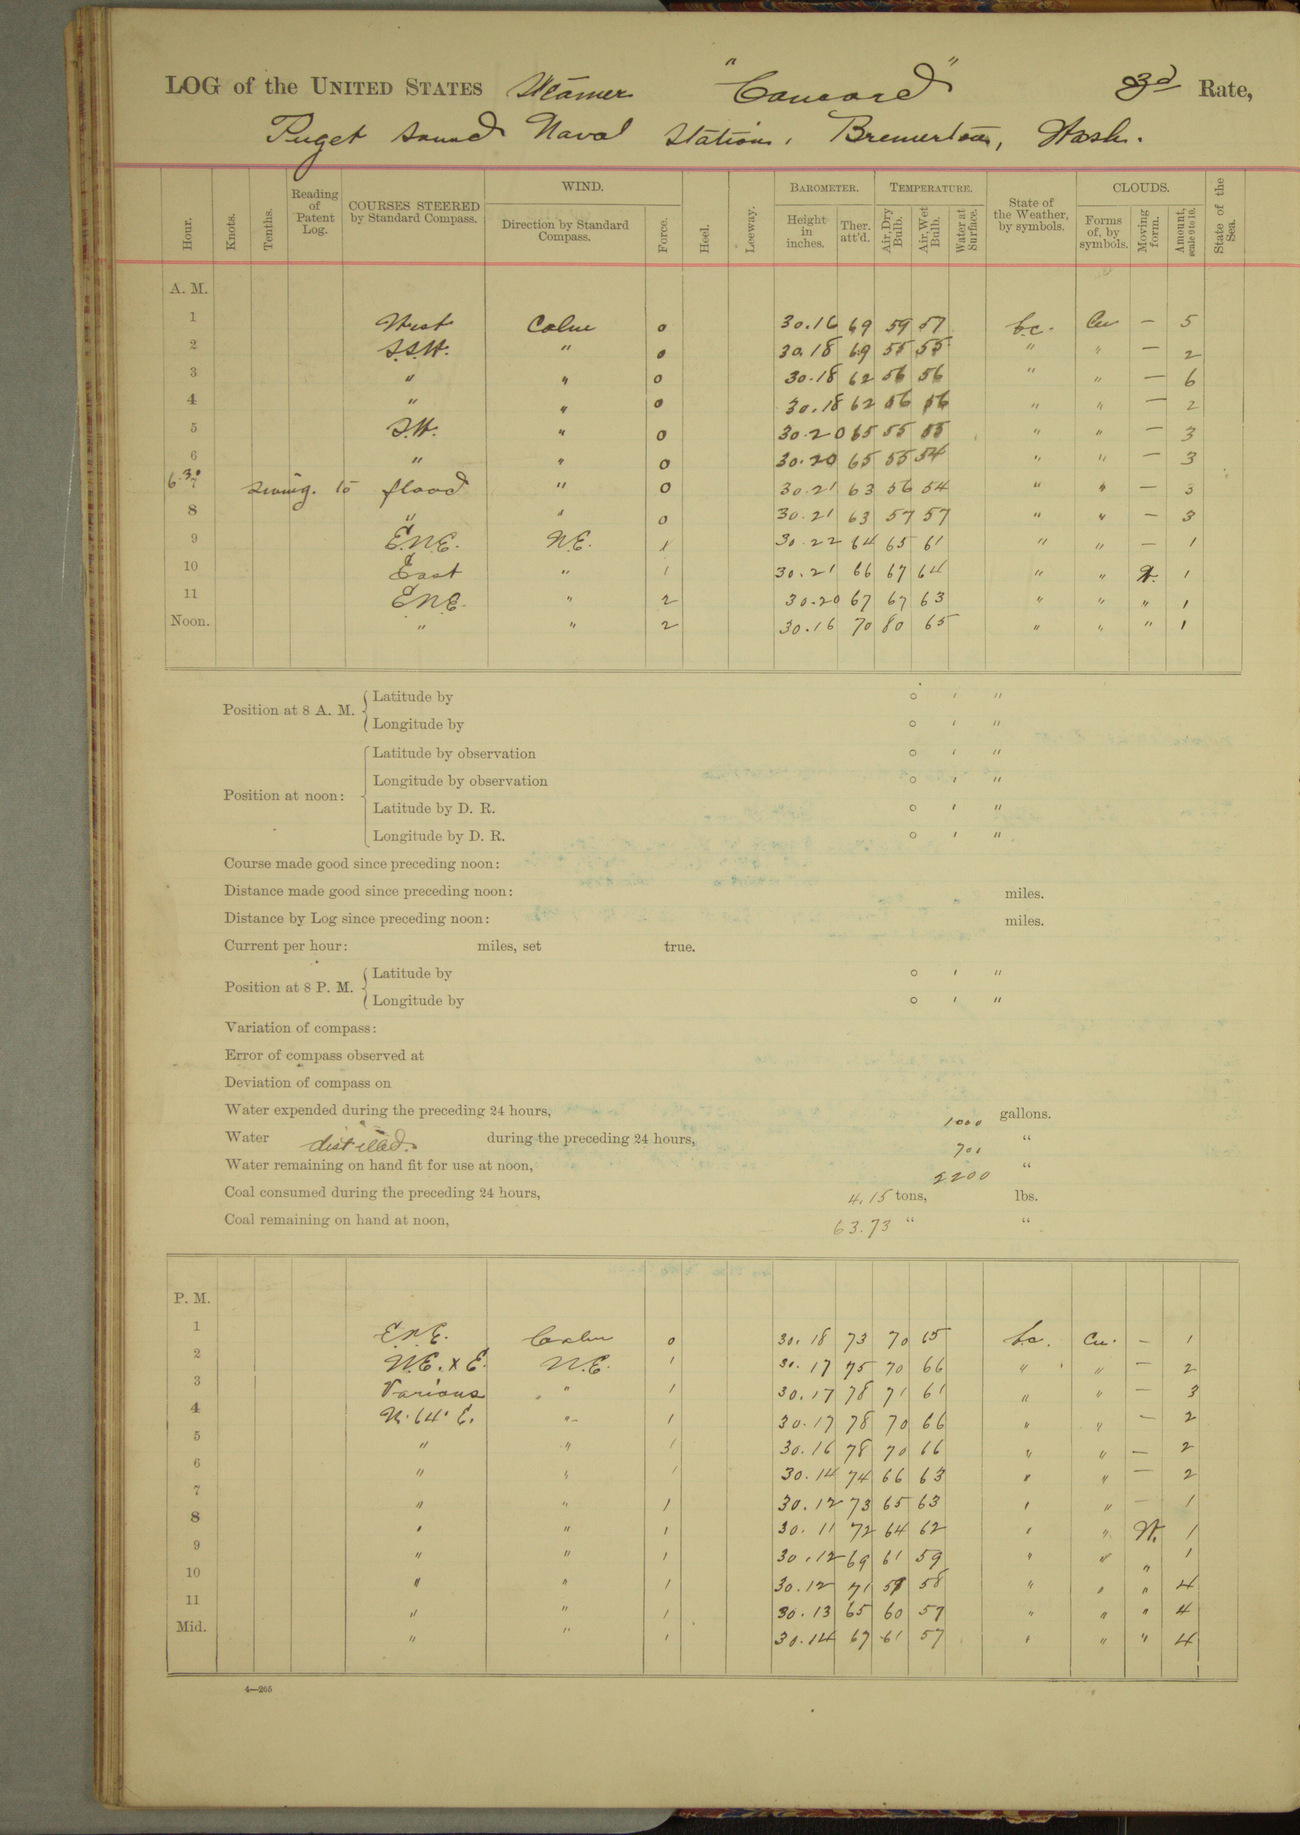 LOG of the UNITED STATES Steamer "Concord" 3d Rate,
Puget Sound Naval Station, Bremerton, Wash.
Hour. Knots. Tenths. Reading of Patent Log. COURSES STEERED by Standard Compass. WIND. Direction by Standard Compass. Force. Heel. Leeway. BAROMETER. Height in inches. Ther. att'd. TEMPERATURE. Air, Dry Bulb. Air, Wet Bulb. Water at Surface. State of the Weather, by symbols. CLOUDS. Forms of, by symbols. Moving form. Amount, scale 0 to 10. State of the Sea.
A. M.
1 West Calm 0 30.16 69 59 57 b.c. Cu — 5
2 S.S.W. " 0 30.18 69 55 55 " " — 2
3 " " 0 30.18 62 56 56 " " — 6
4 " " 0 30.18 62 56 56 " " — 2
5 S.W. " 0 30.20 65 55 55 " " — 3
6 " " 0 30.20 65 55 54 " " — 3
6.30 7 swing. to flood " 0 30.21 63 56 54 " " — 3
8 " " 0 30.21 63 57 57 " " — 3
9 E.N.E. N.E. 1 30.22 64 65 61 " " — 1
10 East " 1 30.21 66 67 64 " " W. 1
11 E.N.E. " 2 30.20 67 67 63 " " " 1
Noon. " " 2 30.16 70 80 65 " " " 1
Position at 8 A. M. Latitude by ° ' "
Longitude by ° ' "
Position at noon: Latitude by observation ° ' "
Longitude by observation ° ' "
Latitude by D. R. ° ' "
Longitude by D. R. ° ' "
Course made good since preceding noon:
Distance made good since preceding noon: miles.
Distance by Log since preceding noon: miles.
Current per hour: miles, set true.
Position at 8 P. M. Latitude by ° ' "
Longitude by ° ' "
Variation of compass:
Error of compass observed at
Deviation of compass on
Water expended during the preceding 24 hours, 1000 gallons.
Water distilled. during the preceding 24 hours, 700 "
Water remaining on hand fit for use at noon, 2200 "
Coal consumed during the preceding 24 hours, 4.15 tons, lbs.
Coal remaining on hand at noon, 63.73 " "
P. M.
1 E.N.E. Calm 0 30.18 73 70 65 b.c. Cu. — 1
2 N.E. x E. N.E. 1 30.17 75 70 66 " " — 2
3 Various " 1 30.17 78 71 61 " " — 3
4 N. 64° E. " 1 30.17 78 70 66 " " — 2
5 " " 1 30.16 78 70 66 " " — 2
6 " " 1 30.14 74 66 63 " " — 2
7 " " 1 30.12 73 65 63 " " — 1
8 " " 1 30.11 72 64 62 " " W. 1
9 " " 1 30.12 69 61 59 " " " 1
10 " " 1 30.12 71 58 " " " 4
11 " " 1 30.13 65 60 57 " " " 4
Mid. " " 1 30.14 67 61 57 " " " 4
4—265